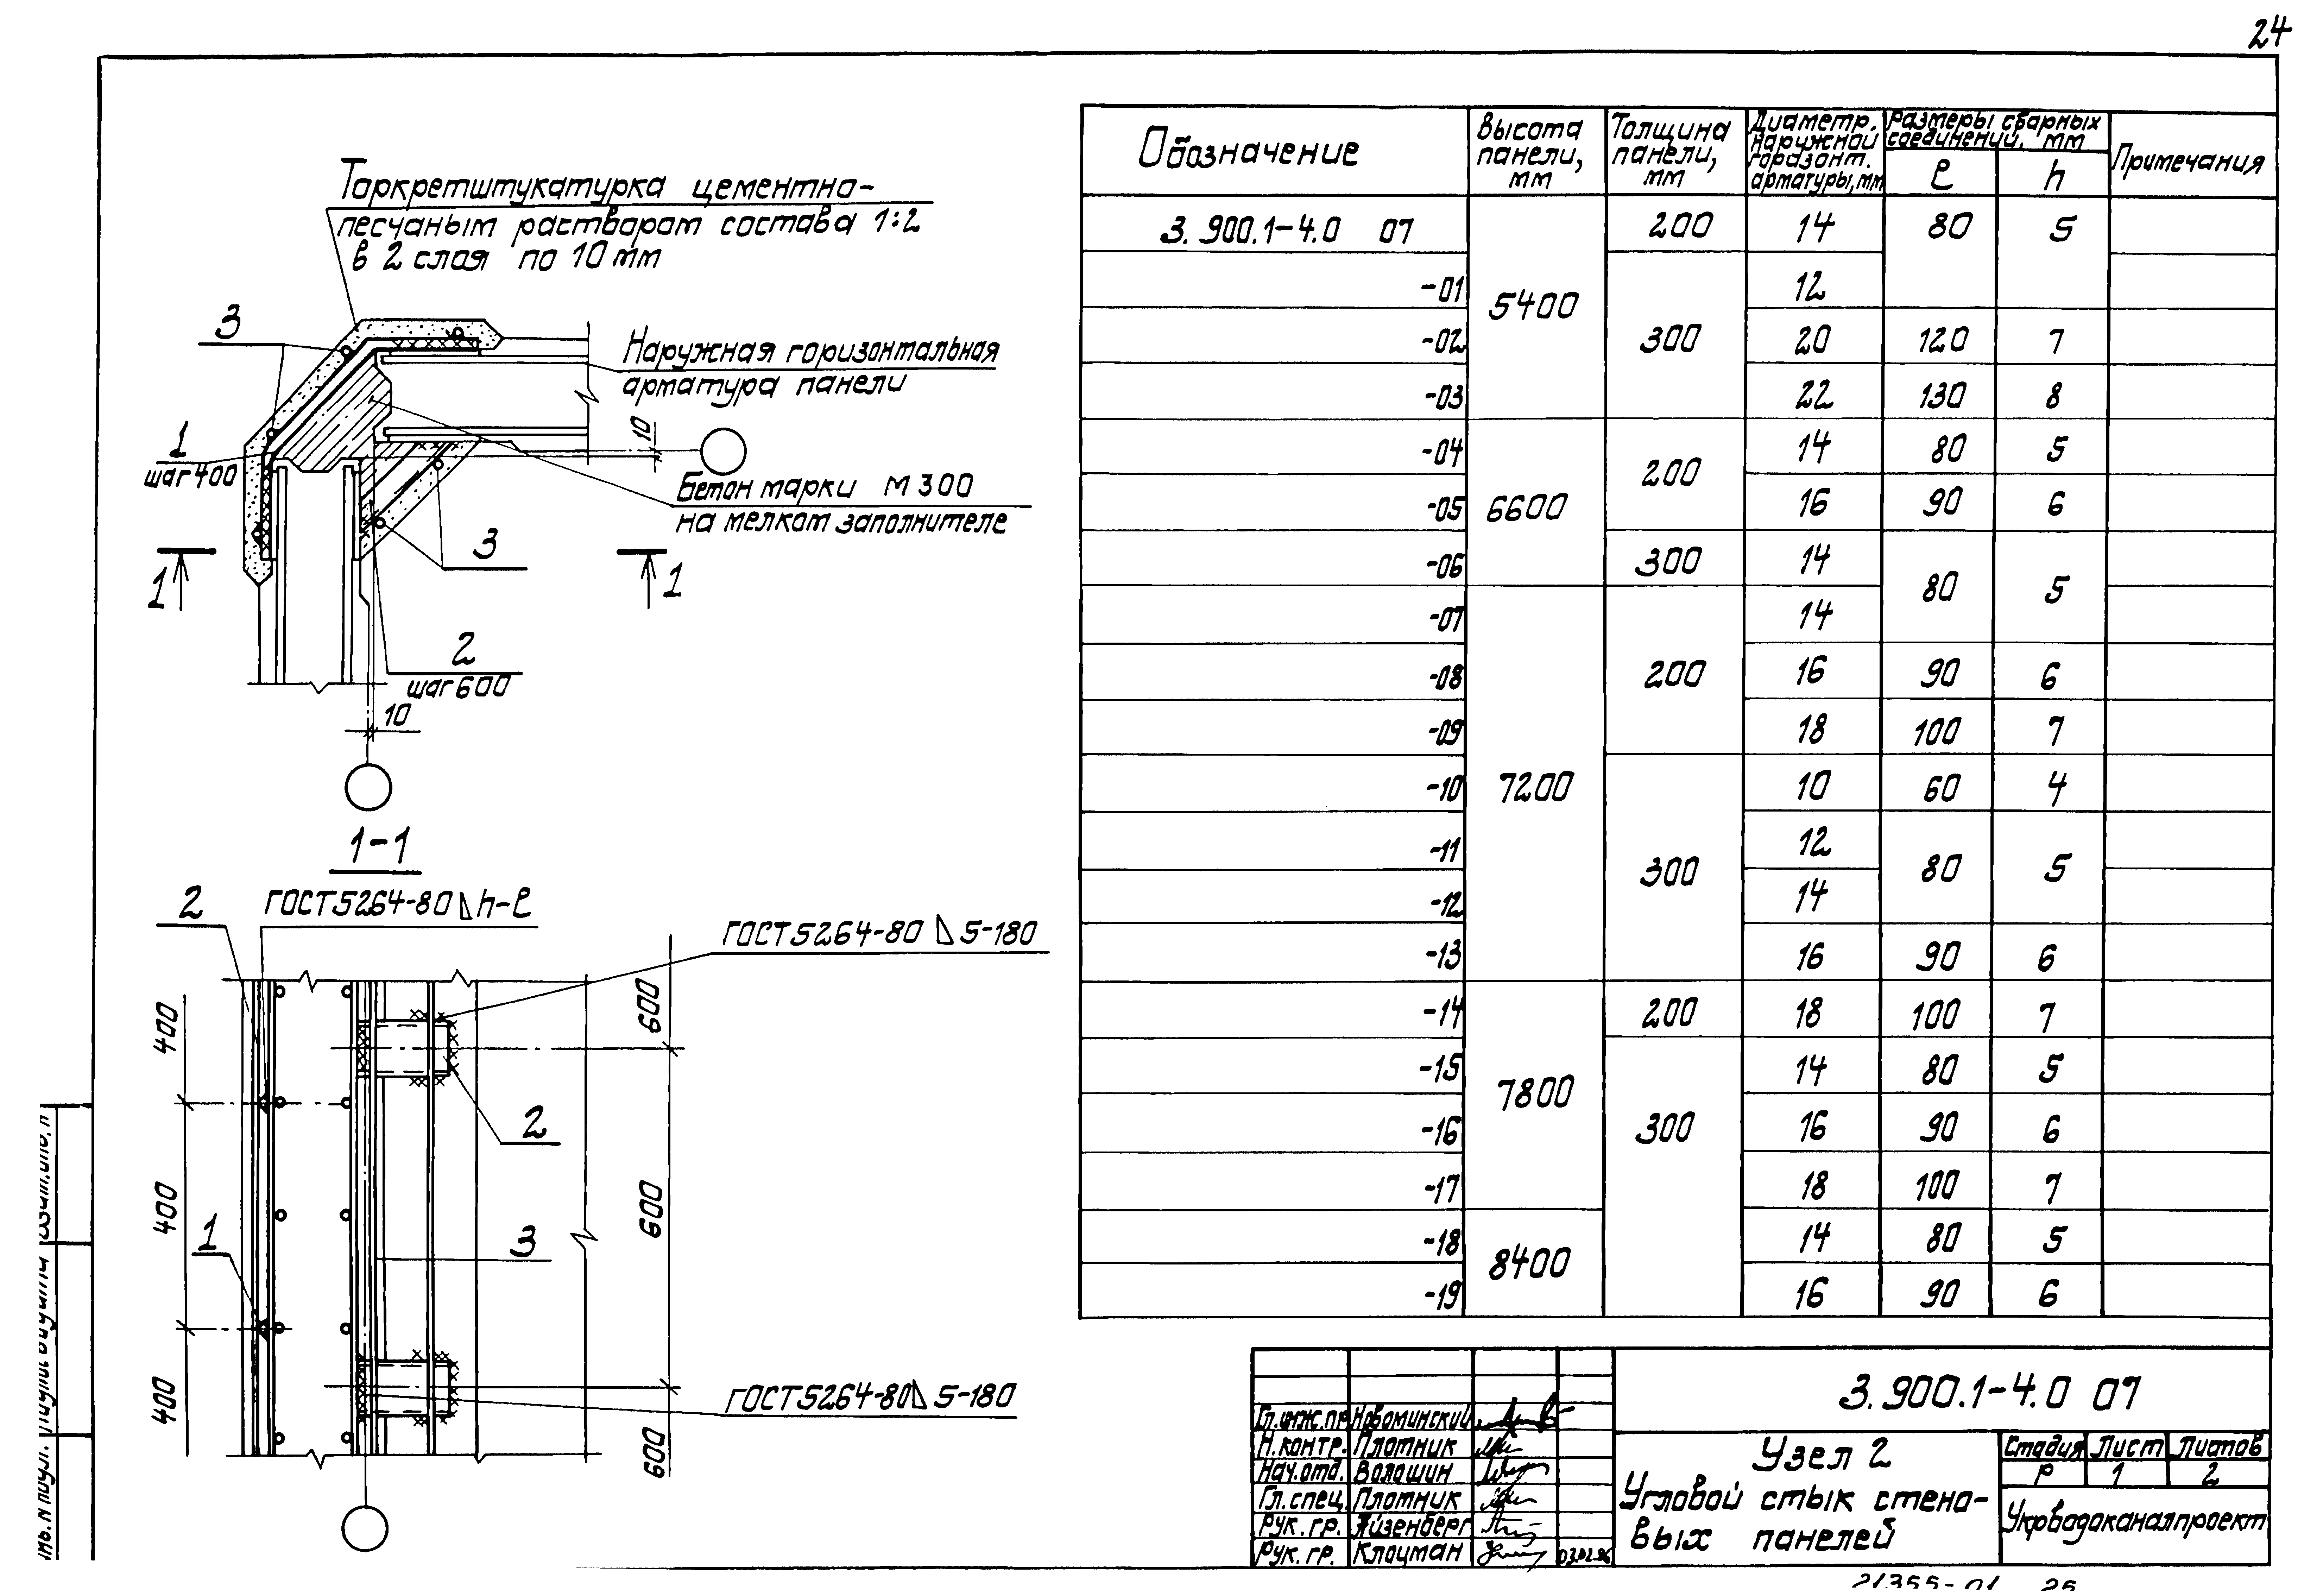 24
Торкретштукатурка цементно-
песчаным раствором состава 1:2
в 2 слоя по 10 мм
3
Наружная горизонтальная
арматура панели
10
1
шаг 400
Бетон марки М 300
на мелком заполнителе
3
1
1
2
шаг 600
10
1-1
2
ГОСТ 5264-80 ◺ h-ℓ
ГОСТ 5264-80 ◺ 5-180
400
600
2
400
600
1
3
400
600
ГОСТ 5264-80 ◺ 5-180
Обозначение Высота панели, мм Толщина панели, мм Диаметр. наружной горизонт. арматуры, мм Размеры сварных соединений, мм Примечания
ℓ h
3.900.1-4.0 07 5400 200 14 80 5
-01 300 12
-02 20 120 7
-03 22 130 8
-04 6600 200 14 80 5
-05 16 90 6
-06 300 14 80 5
-07 7200 200 14
-08 16 90 6
-09 18 100 7
-10 300 10 60 4
-11 12 80 5
-12 14
-13 16 90 6
-14 7800 200 18 100 7
-15 300 14 80 5
-16 16 90 6
-17 18 100 7
-18 8400 14 80 5
-19 16 90 6
3.900.1-4.0 07
Гл.инж.пр. Новоминский
Н.контр. Плотник
Нач.отд. Волошин
Гл.спец. Плотник
Рук.гр. Айзенберг
Рук.гр. Клоцман 03.02.86
Узел 2
Угловой стык стено-
вых панелей
Стадия Лист Листов
Р 1 2
Укрводоканалпроект
Инв.N подл. Подпись и дата Взам.инв.N
21355-01 25